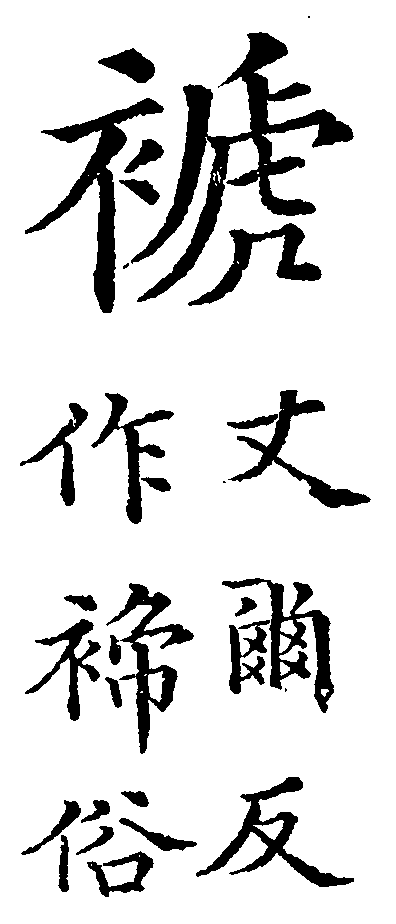 褫
丈爾反
作褅俗